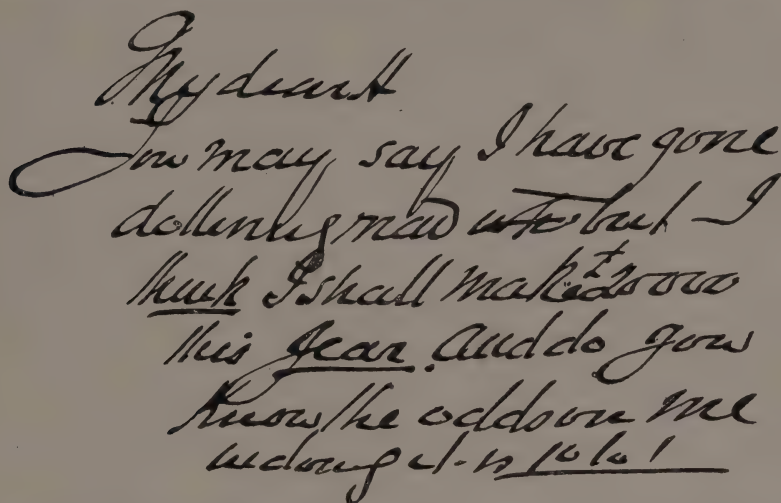 My dear H
You may say I have gone
mad but I
think I shall make £20000
this year. And do you
know the odds on me
doing it is 10 to 1